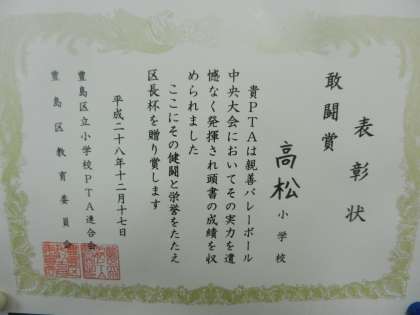 表彰状
敢闘賞
高松小学校
貴PTAは親善バレーボール
中央大会においてその実力を遺
憾なく発揮され頭書の成績を収
められました
ここにその健闘と栄誉をたたえ
区長杯を贈り賞します
平成二十八年十二月十七日
豊島区立小学校PTA連合会
豊島区教育委員会